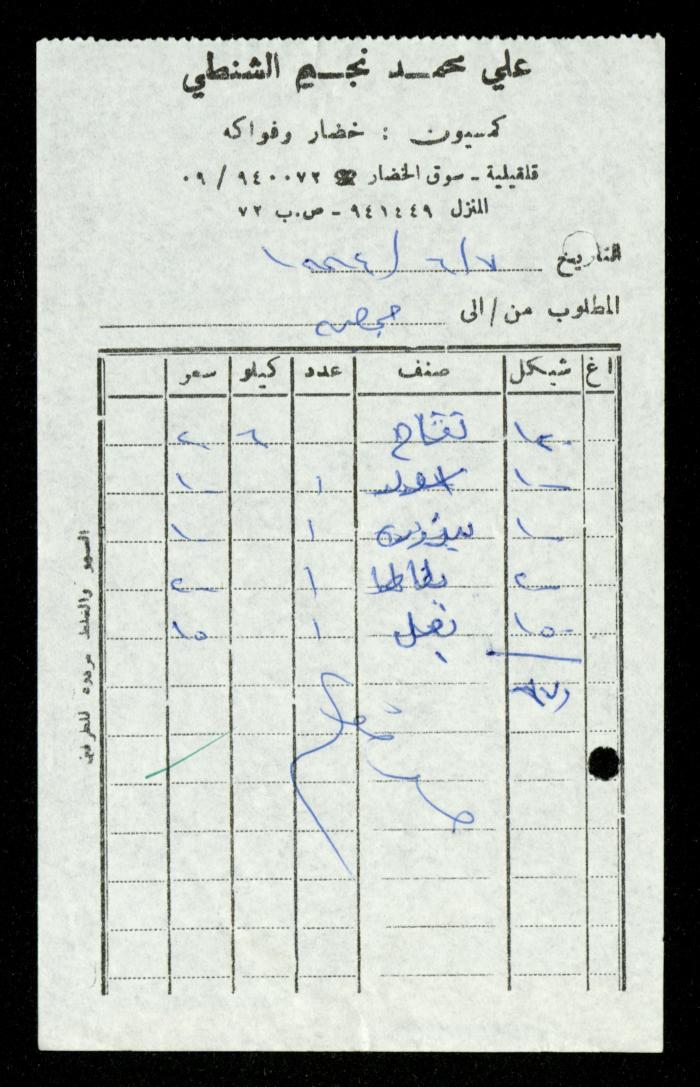 علي محمد نجيم الشنطي
كمسيون : خضار وفواكه
قلقيلية - سوق الخضار ☎ ٩٤٠٠٧٢ / ٠٩
المنزل ٩٤١٤٤٩ - ص.ب ٧٢
التاريخ ٧/٦/١٩٩٤
المطلوب من/الى
اغ شيكل صنف عدد كيلو سعر
١٢- تفاح ٦ ٢
١٠- ١ ١٠-
١٠- ١ ١٠-
٢٠- بطاطا ١ ٢٠-
١٥- بصل ١ ١٥
٦٧
السهو والغلط مردود للطرفين